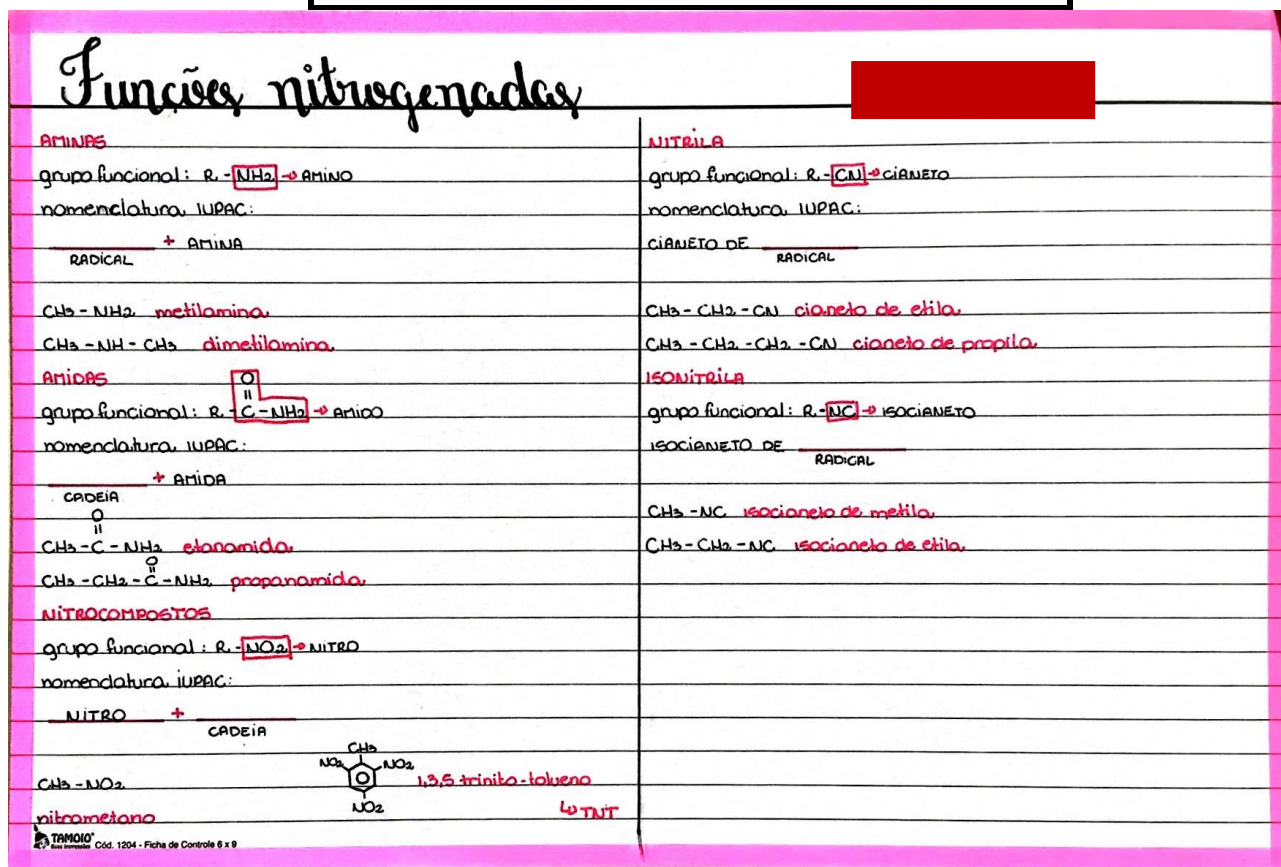 Funções nitrogenadas
AMINAS
grupo funcional: R-NH2 → AMINO
nomenclatura IUPAC:
+ AMINA
RADICAL
CH3 - NH2 metilamina
CH3 - NH - CH3 dimetilamina
AMIDAS
O
grupo funcional: R-C-NH2 → AMIDO
nomenclatura IUPAC:
+ AMIDA
CADEIA
O
CH3 - C - NH2 etanamida
O
CH3 - CH2 - C - NH2 propanamida
NITROCOMPOSTOS
grupo funcional: R-NO2 → NITRO
nomenclatura IUPAC:
NITRO +
CADEIA
CH3
NO2 NO2
CH3 - NO2 1,3,5 trinito-tolueno
NO2
nitrometano ↳ TNT
TAMOIO
Cód. 1204 - Ficha de Controle 6 x 9
NITRILA
grupo funcional: R-CN → CIANETO
nomenclatura IUPAC:
CIANETO DE
RADICAL
CH3 - CH2 - CN cianeto de etila
CH3 - CH2 - CH2 - CN cianeto de propila
ISONITRILA
grupo funcional: R-NC → ISOCIANETO
ISOCIANETO DE
RADICAL
CH3 - NC isocianeto de metila
CH3 - CH2 - NC isocianeto de etila